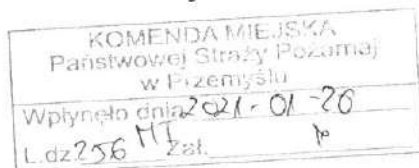 KOMENDA MIEJSKA
Państwowej Straży Pożarnej
w Przemyślu
Wpłynęło dnia 2021-01-26
L.dz 256 MT Zał.